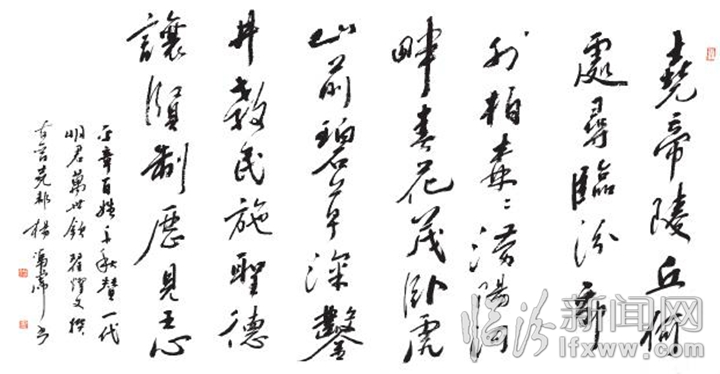 堯帝陵丘何
處尋臨汾郭
外柏森々陽河
畔春花茂臥虎
山前碧草深鑿
井教民施聖德
讓賢制曆見心
平章百姓千秋贊一代
明君萬世欽翟耀文撰
古晉堯都楊書
临汾新闻网
www.lfxww.com